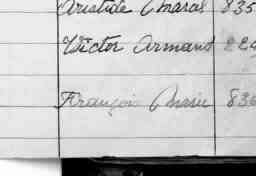 Aristide Maral 835
Victor Armand 224
François Marie 836